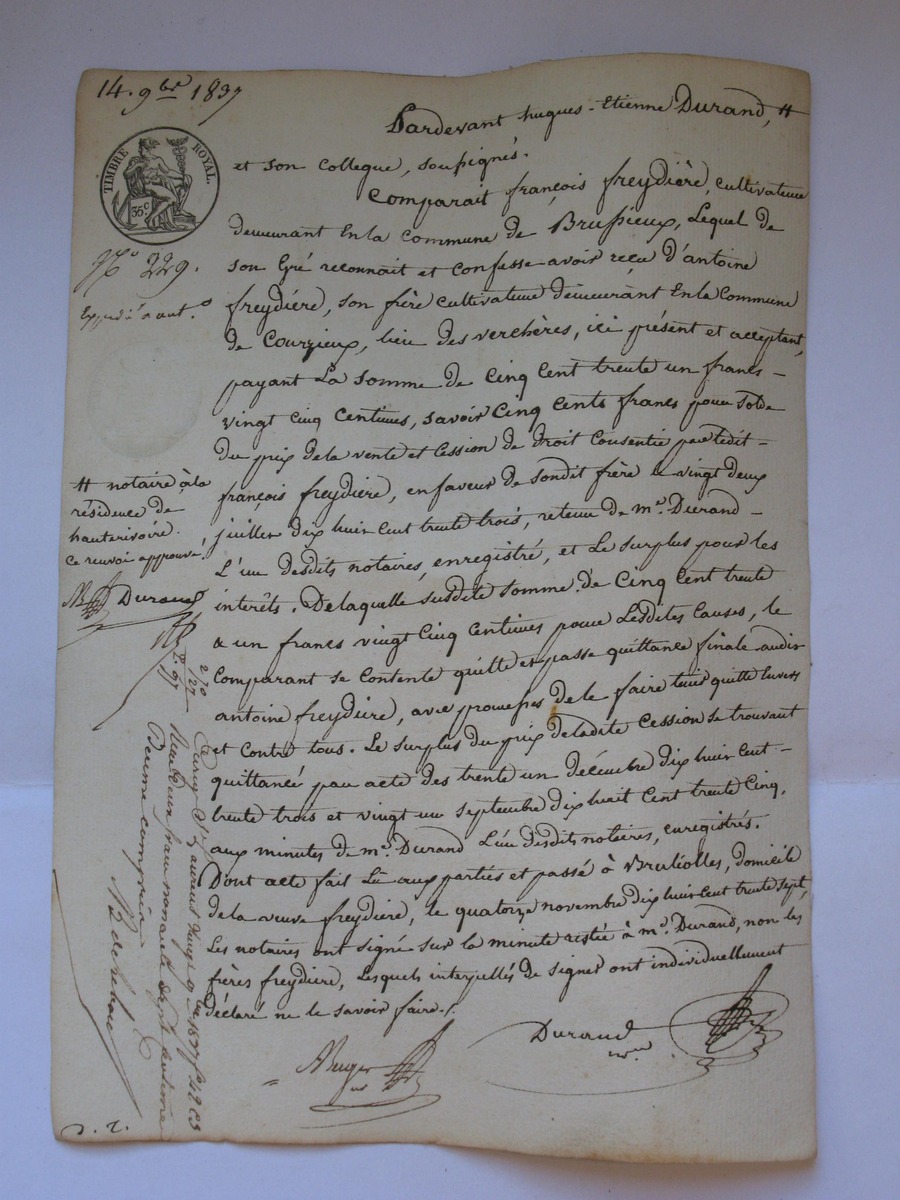 14. 9bre 1837
TIMBRE ROYAL.
35 c
No 229.
Expédié a ant.
Pardevant hugues-Etienne Durand, #
et son collegue, soussignés.
Comparait françois freydière, cultivateur
demeurant En la commune de Brussieux, Lequel de
son Gré reconnait et confesse avoir reçu d'antoine
freydière, son frère cultivateur demeurant En la Commune
de Courzieux, lieu des verchères, ici présent et acceptant,
payant La somme de Cinq Cent trente un francs -
vingt cinq Centimes, savoir Cinq Cents francs pour solde
du prix de la vente et Cession de droit Consentie par ledit -
françois freydière, en faveur de sondit frère le vingt deux
juillet dix huit Cent trente trois, retenue de me. Durand -
L'un desdits notaires, enregistré, et Le surplus pour les
interêts. De laquelle susdite somme de Cinq Cent trente
& un francs vingt Cinq Centimes pour Lesdites Causes, le
Comparant se Contente quitte et passe quittance finale audit
antoine freydière, avec promesses de le faire tenir quitte Envers
et Contre tous. Le surplus du prix de ladite Cession se trouvant
quittancé par acte des trente un décembre dix huit Cent -
trente trois et vingt un septembre dix huit Cent trente Cinq,
aux minutes de me. Durand L'un desdits notaires, enregistrés.
Dont acte fait Lû aux parties et passé à Brulliolles, domicile
de la veuve freydière, le quatorze novembre dix huit Cent trente sept,
Les notaires ont signé sur la minute restée à me. Durand, non les
frères freydière, Lesquels interpellés de signer ont individuellement
déclaré ne le savoir faire./.
# notaire à la
résidence de
hauterivoire.
ce renvoi approuvé.
Durand
2 70
27
2. 97
Reçu deux francs nonante sept centimes
Décime compris
Durand